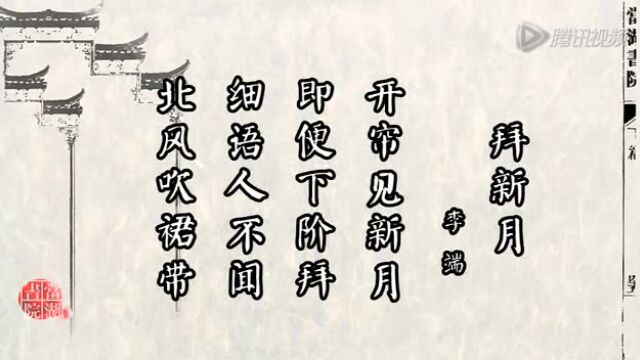 腾讯视频
拜新月
李湍
开帘见新月
即便下阶拜
细语人不闻
北风吹裙带
湖書院